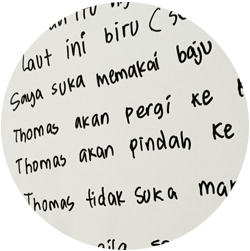 Laut ini biru (
Saya suka memakai baju
Thomas akan pergi ke
Thomas akan pindah ke
Thomas tidak suka